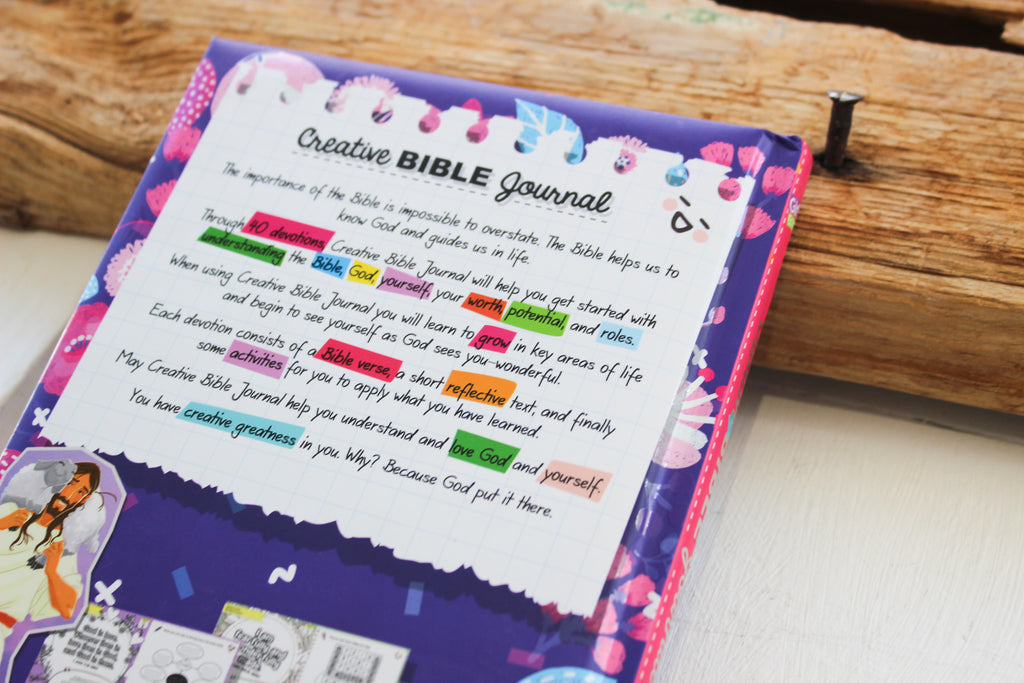 Creative BIBLE Journal
The importance of the Bible is impossible to overstate. The Bible helps us to
know God and guides us in life.
Through 40 devotions, Creative Bible Journal will help you get started with
understanding the Bible, God, yourself, your worth, potential, and roles.
When using Creative Bible Journal you will learn to grow in key areas of life
and begin to see yourself as God sees you—wonderful.
Each devotion consists of a Bible verse, a short reflective text, and finally
some activities for you to apply what you have learned.
May Creative Bible Journal help you understand and love God and yourself.
You have creative greatness in you. Why? Because God put it there.